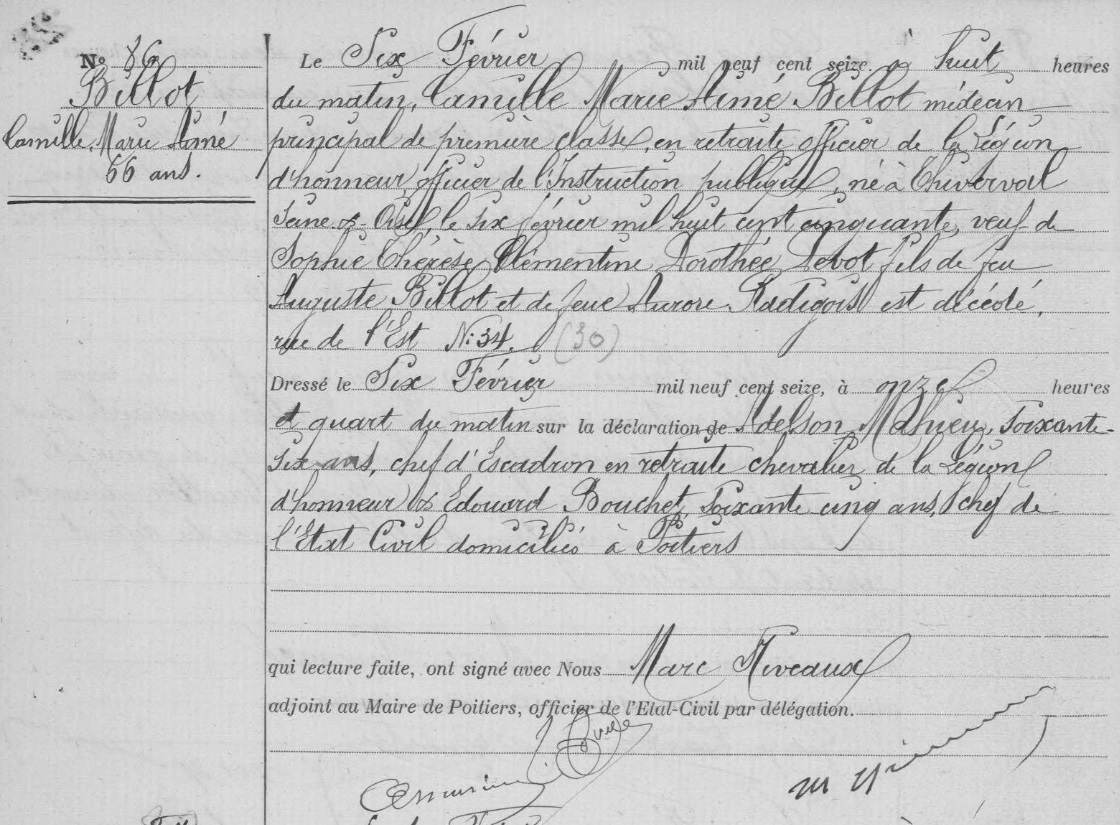 Nº 86
Billot
Camille, Marie Aimé
66 ans.
Le Six Février mil neuf cent seize à huit heures
du matin, Camille Marie Aimé Billot médecin
principal de première classe, en retraite officier de la Légion
d'honneur officier de l'Instruction publique, né à Thiverval
Seine & Oise, le six février mil huit cent cinquante, veuf de
Sophie Thérèse Clémentine Dorothée Devot fils de feu
Auguste Billot et de feue Aurore Radigois est décédé,
rue de l'Est Nº 34. (30)
Dressé le Six Février mil neuf cent seize, à onze heures
et quart du matin sur la déclaration de Adelson Mahieu, soixante-
six ans, chef d'Escadron en retraite chevalier de la Légion
d'honneur & Edouard Bouchet, soixante cinq ans, chef de
l'Etat Civil domiciliés à Poitiers
qui lecture faite, ont signé avec Nous Marc Niveaux
adjoint au Maire de Poitiers, officier de l'Etat-Civil par délégation.